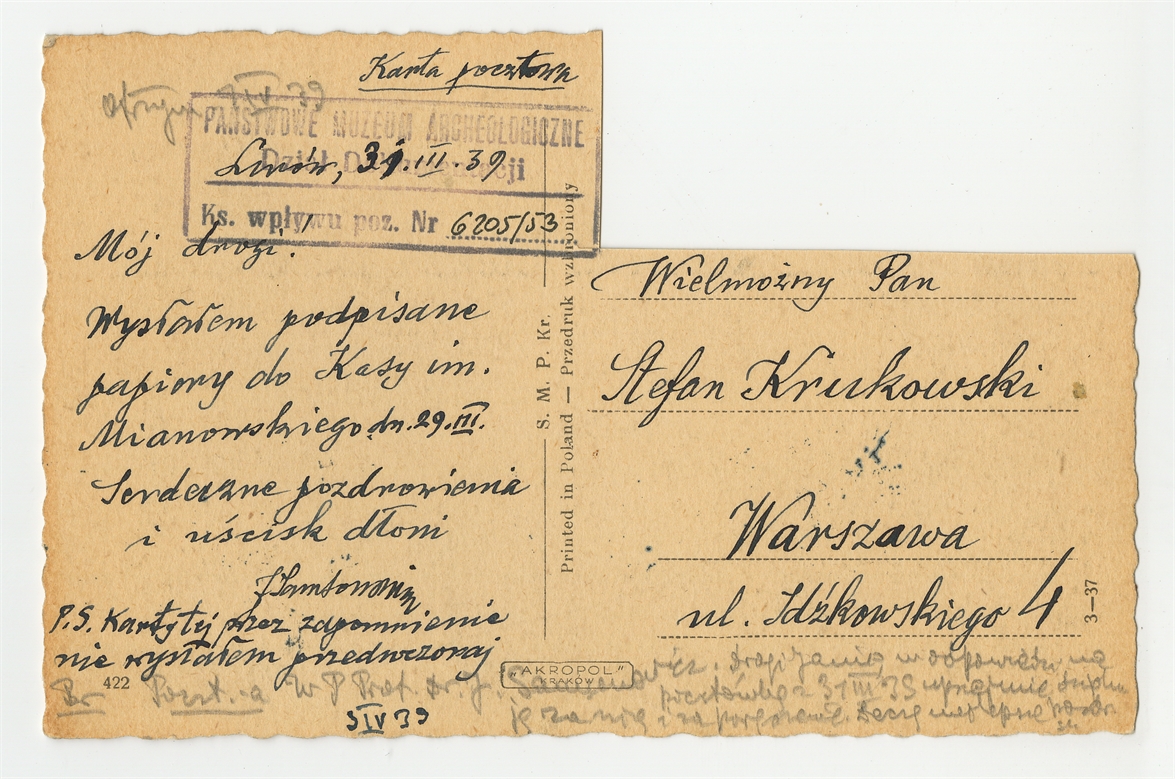 Karta pocztowa
IV 39
PAŃSTWOWE MUZEUM ARCHEOLOGICZNE
Dział Dokumentacji
Lwów, 31.III.39
Ks. wpływu poz. Nr 6205/53
Mój drogi!
Wysłałem podpisane
papiery do Kasy im.
Mianowskiego dn. 29.III.
Serdeczne pozdrowienia
i uścisk dłoni
P.S. Kartę tej przez zapomnienie
nie wysłałem przedwczoraj
422
3 IV 39
S. M. P. Kr.
Printed in Poland — Przedruk wzbroniony
"AKROPOL"
KRAKÓW
Wielmożny Pan
Stefan Krukowski
Warszawa
ul. Idźkowskiego 4
3—37
W P Prof. Dr. J.
w odpowiedzi na
pocztówkę z 31 III 39 uprzejmie